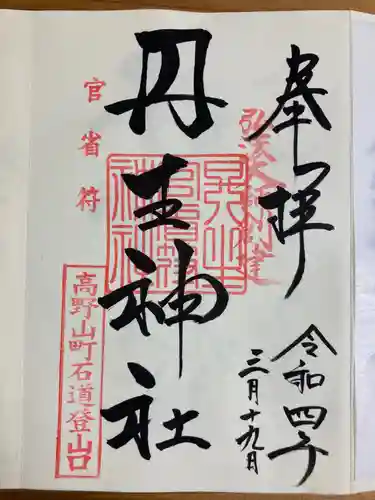 奉拝
弘法大師創建
令和四年
三月十九日
丹生神社
官省符
高野山町石道登山口